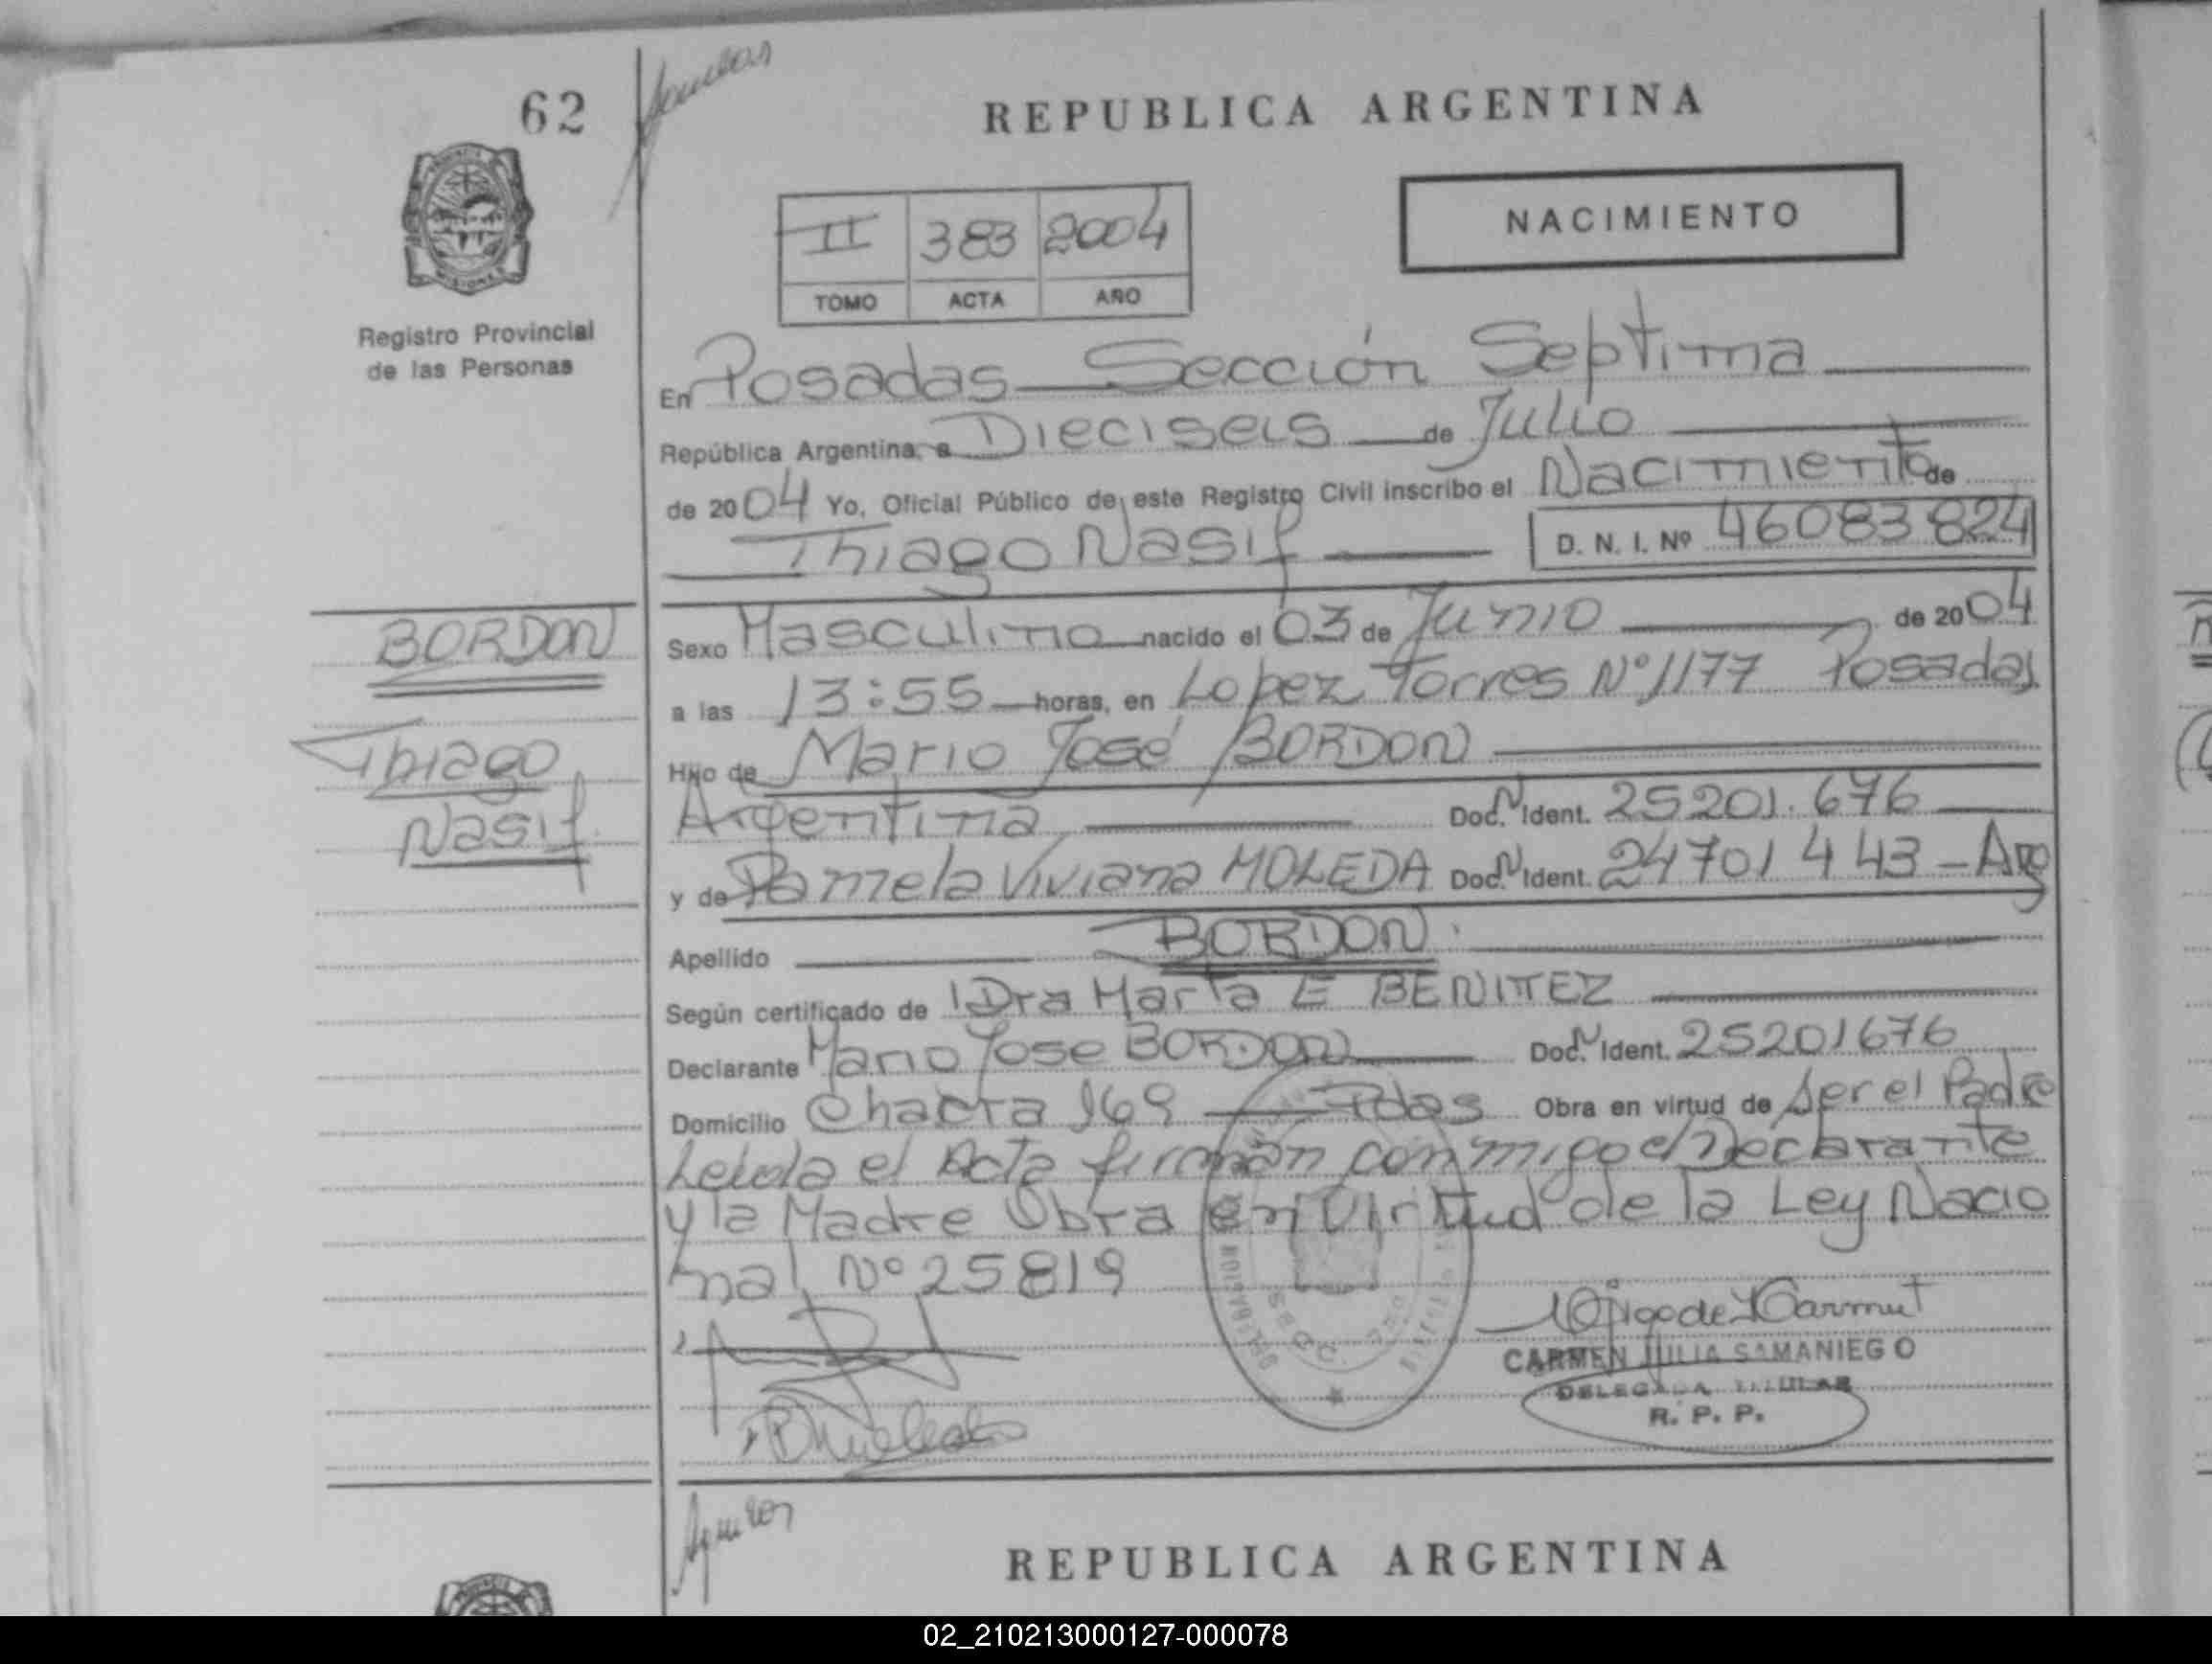 62
REPUBLICA ARGENTINA
NACIMIENTO
II 383 2004
TOMO ACTA AÑO
Registro Provincial
de las Personas
En Posadas Sección Septima
República Argentina, a Dieciseis de Julio
de 2004 Yo, Oficial Público de este Registro Civil inscribo el Nacimiento de
Thiago Nasif D. N. I. Nº 46083824
BORDON
Thiago
Nasif
Sexo Masculino nacido el 03 de Junio de 2004
a las 13:55 horas, en Lopez Torres Nº 1177 Posadas
Hijo de Mario José BORDON
Argentina Doc. N Ident. 25201.676
y de Pamela Viviana MOLEDA Doc. N Ident. 24701443 - Arg
Apellido BORDON
Según certificado de Dra Marta E BENITEZ
Declarante Mario Jose BORDON Doc. N Ident. 25201676
Domicilio Chacra 169 Pdas Obra en virtud de Ser el Padre
Leida el Acta firman conmigo el Declarante
y la Madre Obra en Virtud de la Ley Nacio
nal Nº 25819
CARMEN JULIA SAMANIEGO
DELEGADA TITULAR
R. P. P.
REPUBLICA ARGENTINA
02_210213000127-000078